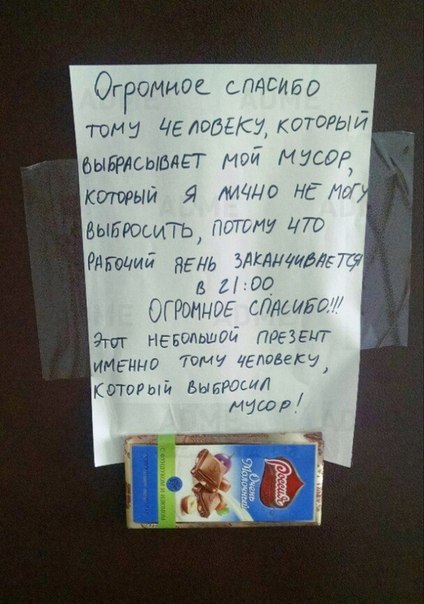 Огромное спасибо
тому человеку, который
выбрасывает мой мусор,
который я лично не могу
выбросить, потому что
рабочий день заканчивается
в 21:00
Огромное спасибо!!!
Этот небольшой презент
именно тому человеку,
который выбросил
мусор!
Россия
Очень
Молочный
с фундуком и изюмом